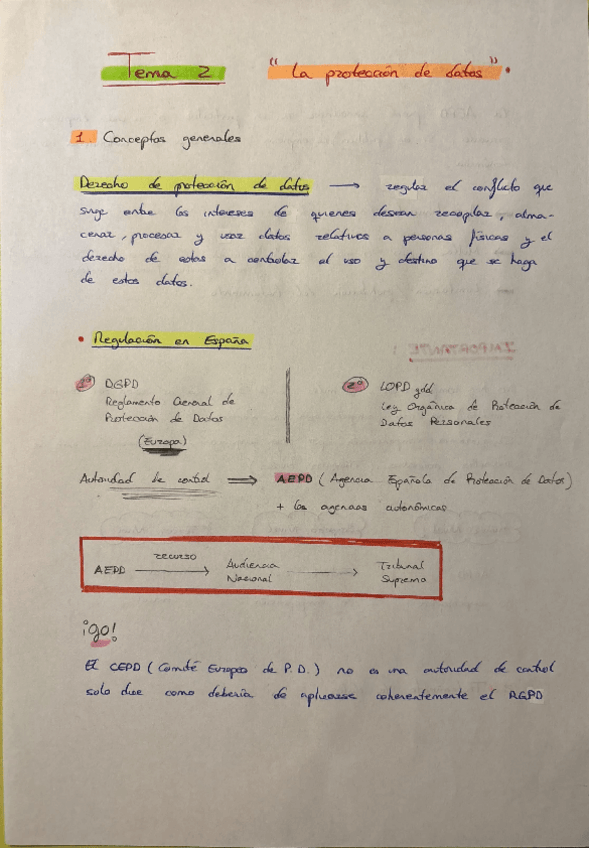 Tema 2 "La protección de datos".
1. Conceptos generales
Derecho de protección de datos → regular el conflicto que
surge entre los intereses de quienes desean recopilar, alma-
cenar, procesar y usar datos relativos a personas físicas y el
derecho de estas a controlar el uso y destino que se haga
de estos datos.
• Regulación en España
1º RGPD
Reglamento General de
Protección de Datos
(Europa)
2º LOPD gdd
Ley Orgánica de Protección de
Datos Personales
Autoridad de control ⇒ AEPD (Agencia Española de Protección de Datos)
+ las agencias autonómicas
AEPD recurso → Audiencia
Nacional → Tribunal
Supremo
¡go!
El CEPD (Comité Europeo de P.D.) no es una autoridad de control
solo dice como debería de aplicarse coherentemente el RGPD
IMPORTANTE: